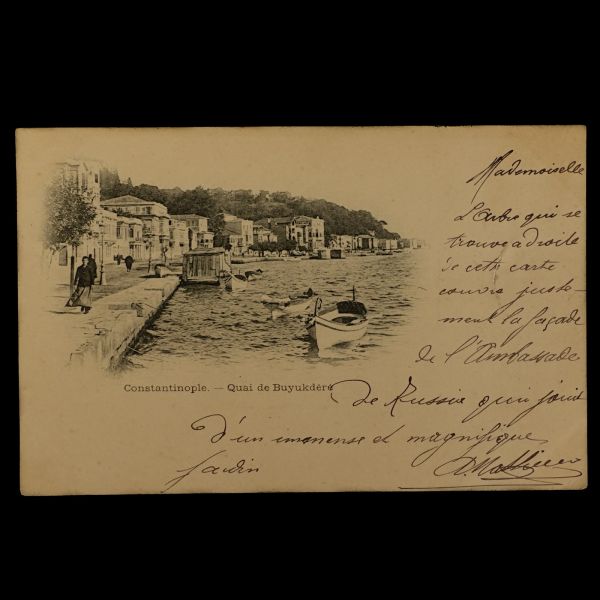 Mademoiselle
L'arbre qui se
trouve a droite
de cette carte
couvre juste-
ment la façade
de l'Ambassade
Constantinople. — Quai de Buyukdéré
de Russie qui jouit
d'un immense et magnifique
jardin